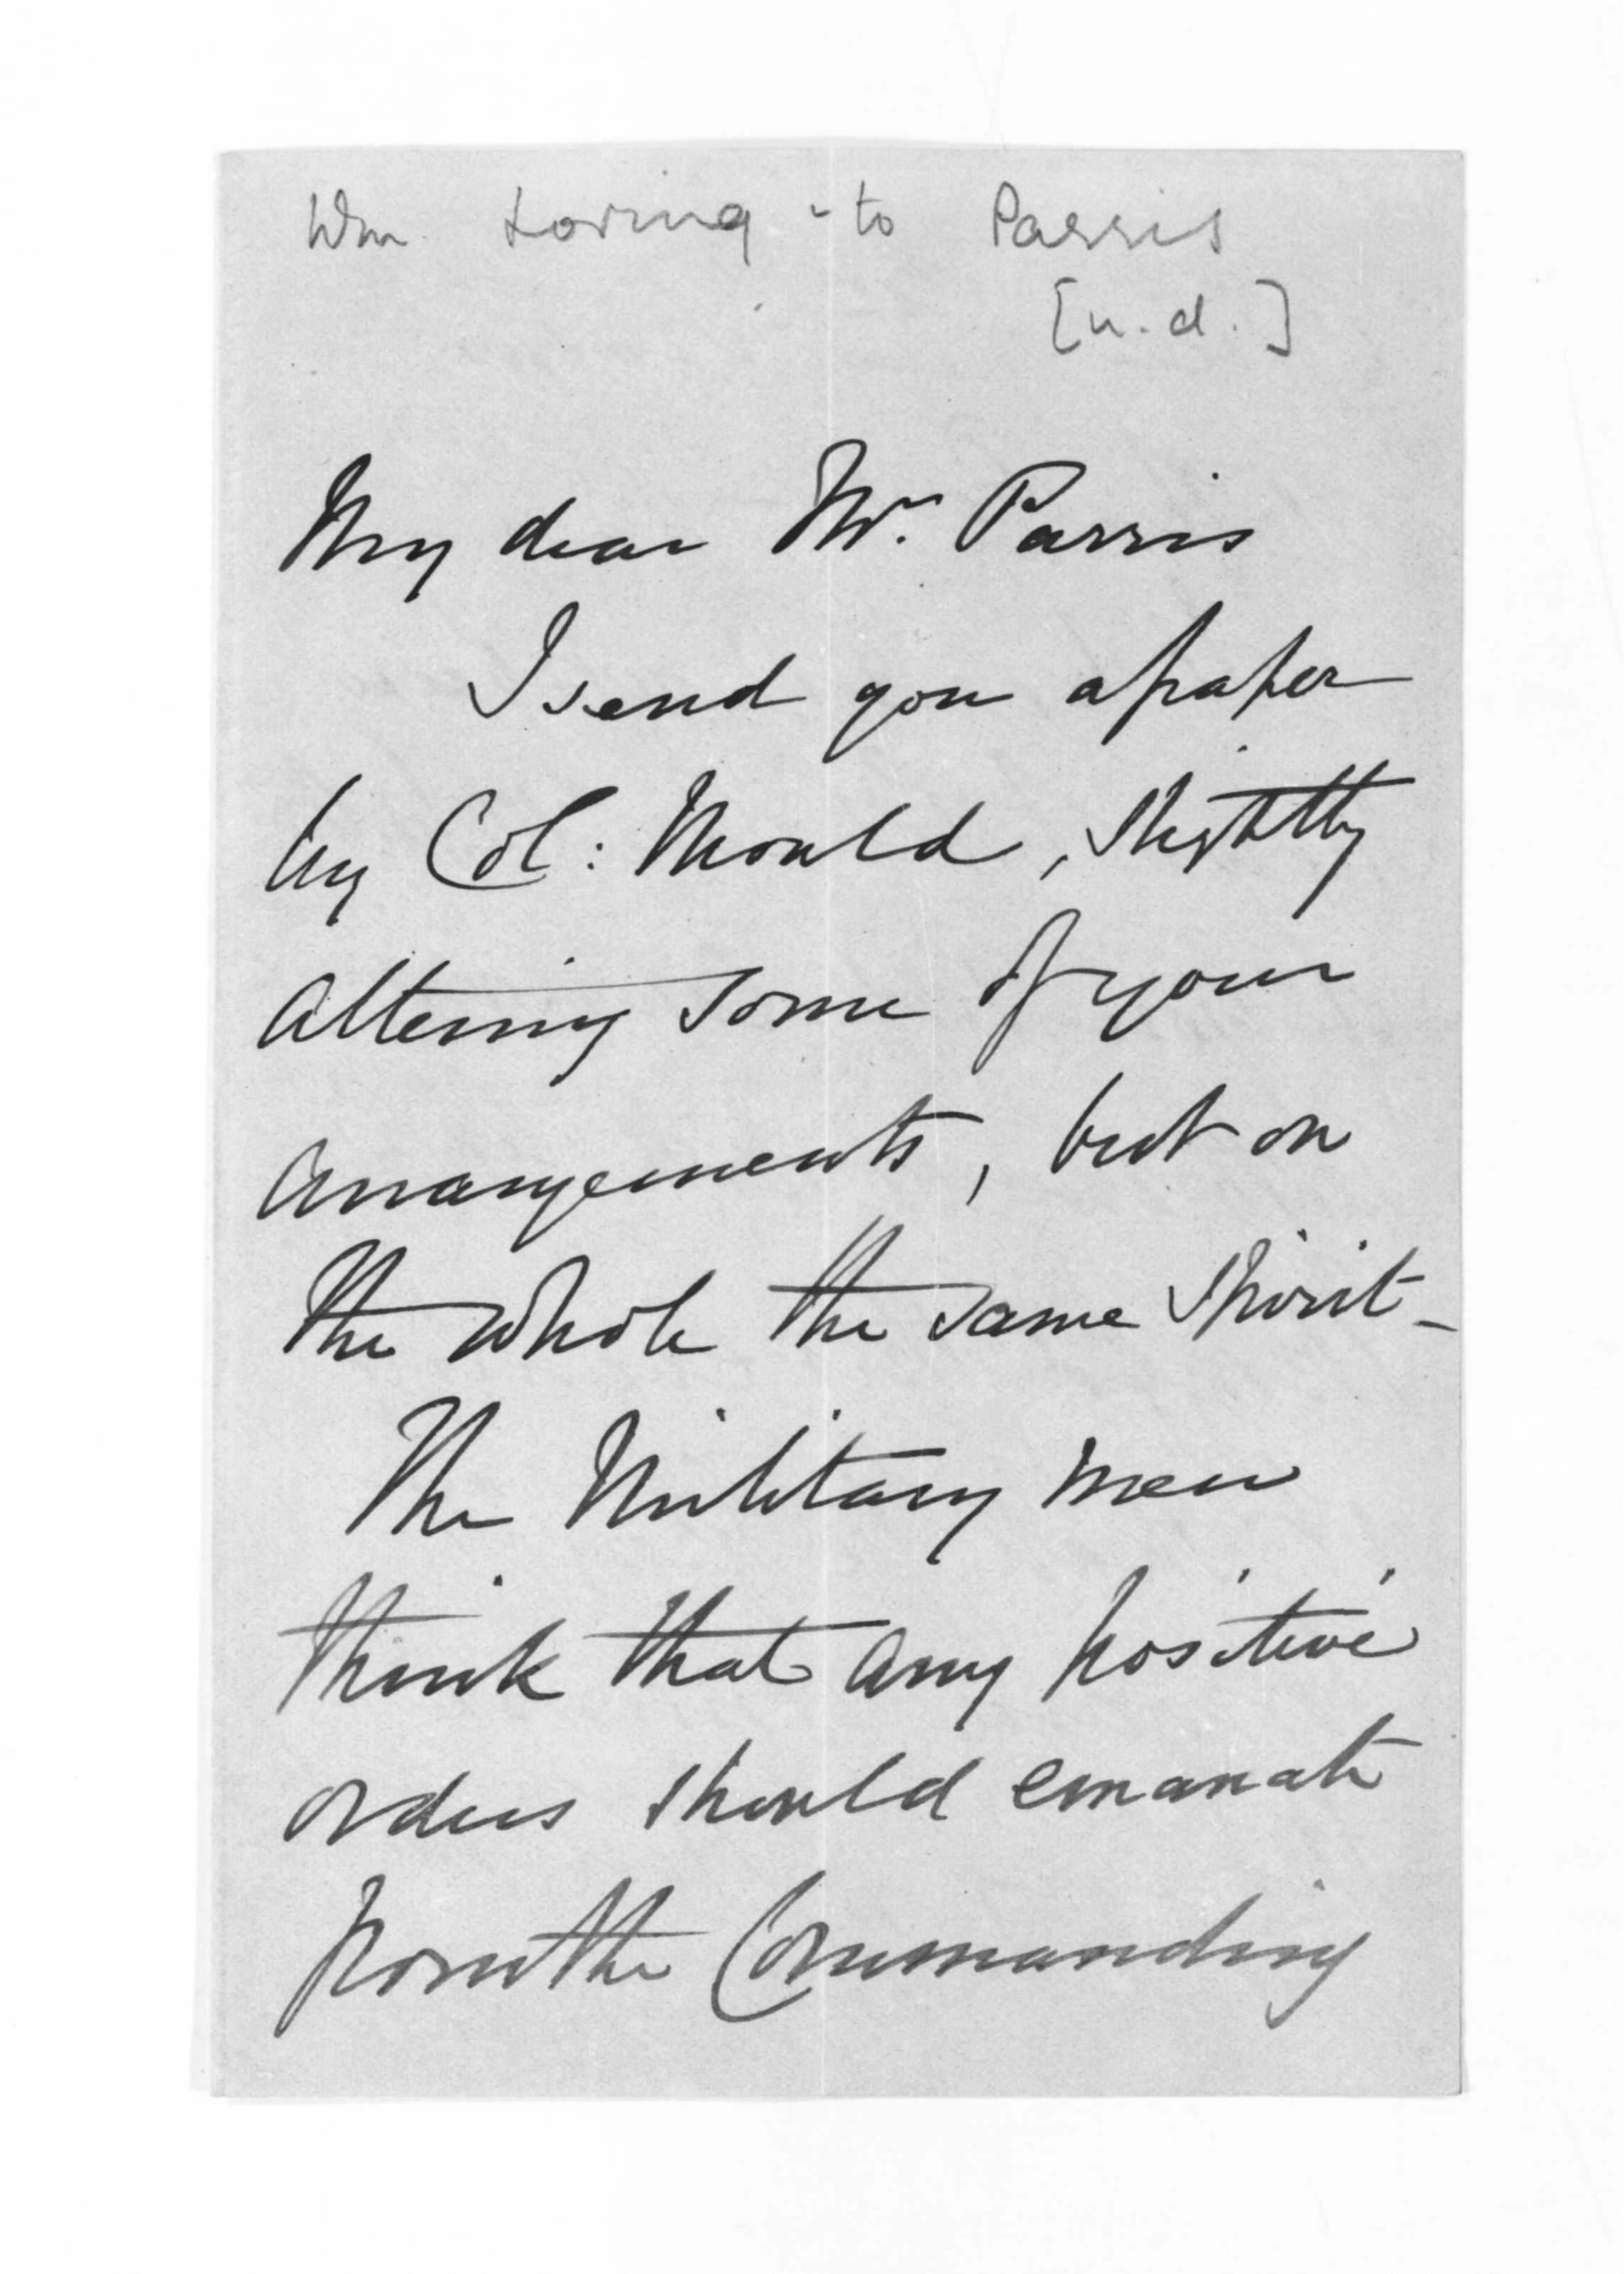 Wm. Loring - to Parris
[n.d.]
My dear Mr. Parris
I send you a paper
by Col: Mould, slightly
altering some of your
arrangements, but on
the whole the same spirit -
The Military men
think that any positive
orders should emanate
from the Commanding